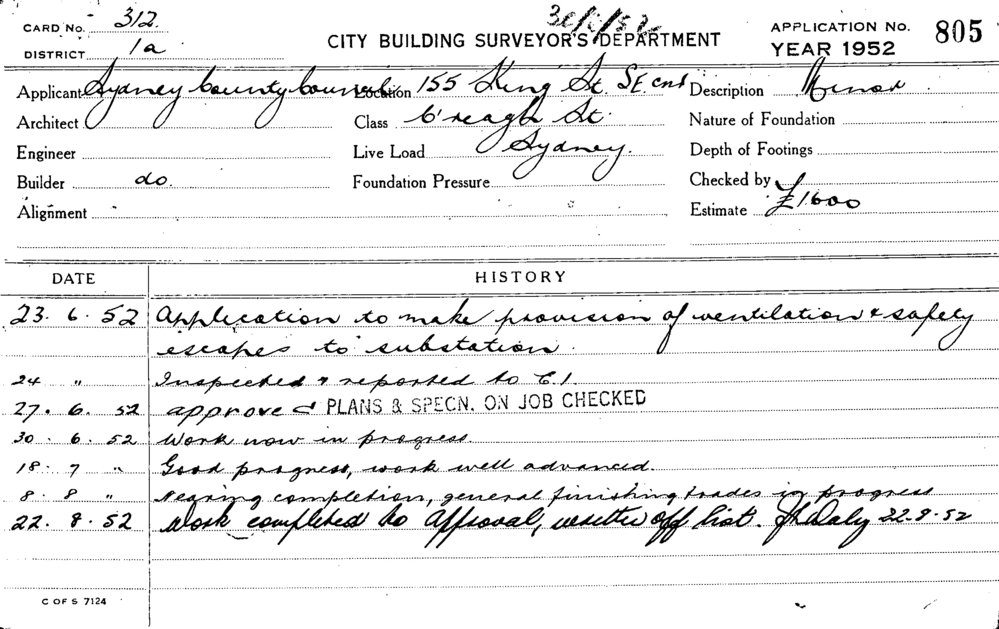 CARD No. 312. CITY BUILDING SURVEYOR'S DEPARTMENT APPLICATION No. 805
DISTRICT 1a YEAR 1952
Applicant Sydney County Council Location 155 King St. SE cnr Description Minor
Architect Class C'reagh St. Nature of Foundation
Engineer Live Load Sydney. Depth of Footings
Builder do. Foundation Pressure Checked by
Alignment Estimate £1600
DATE HISTORY
23. 6. 52 Application to make provision of ventilation & safety
escapes to substation.
24 " Inspected & reported to C.I.
27. 6. 52 approved PLANS & SPECN. ON JOB CHECKED
30. 6. 52 Work now in progress
18. 7 " Good progress, work well advanced.
8. 8 " Nearing completion, general finishing trades in progress
22. 8. 52 Work completed to Approval, off list. Daly 22.8.52
C OF S 7124